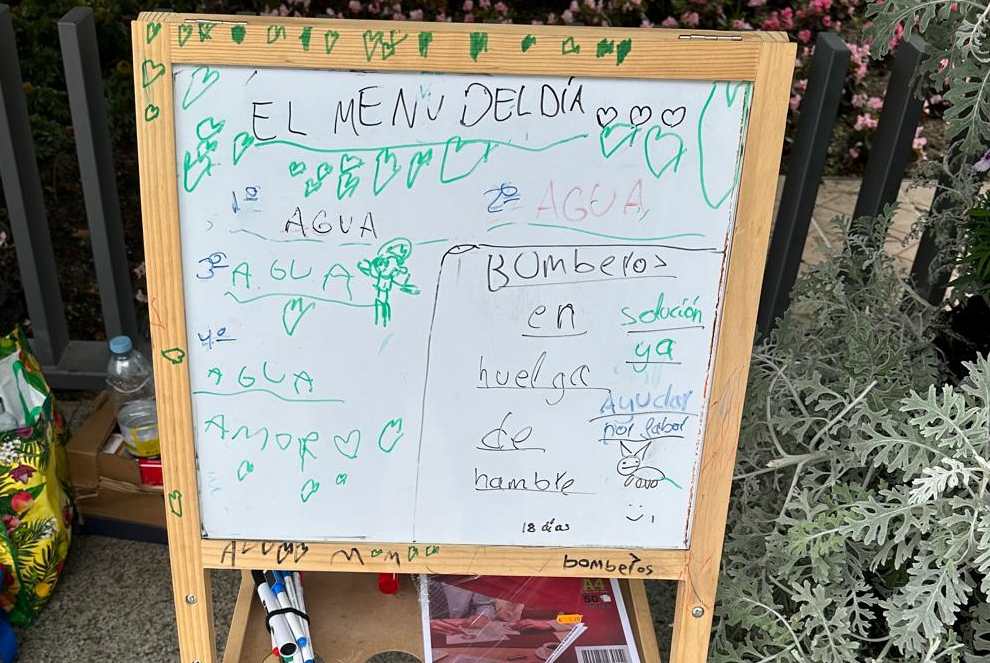 EL MENU DEL DÍA
1º AGUA
2º AGUA
3º AGUA
4º
AGUA
AMOR
Bomberos
en
huelga
de
hambre
solución
ya
Ayudar
por fabor
18 días
bomberos
A4